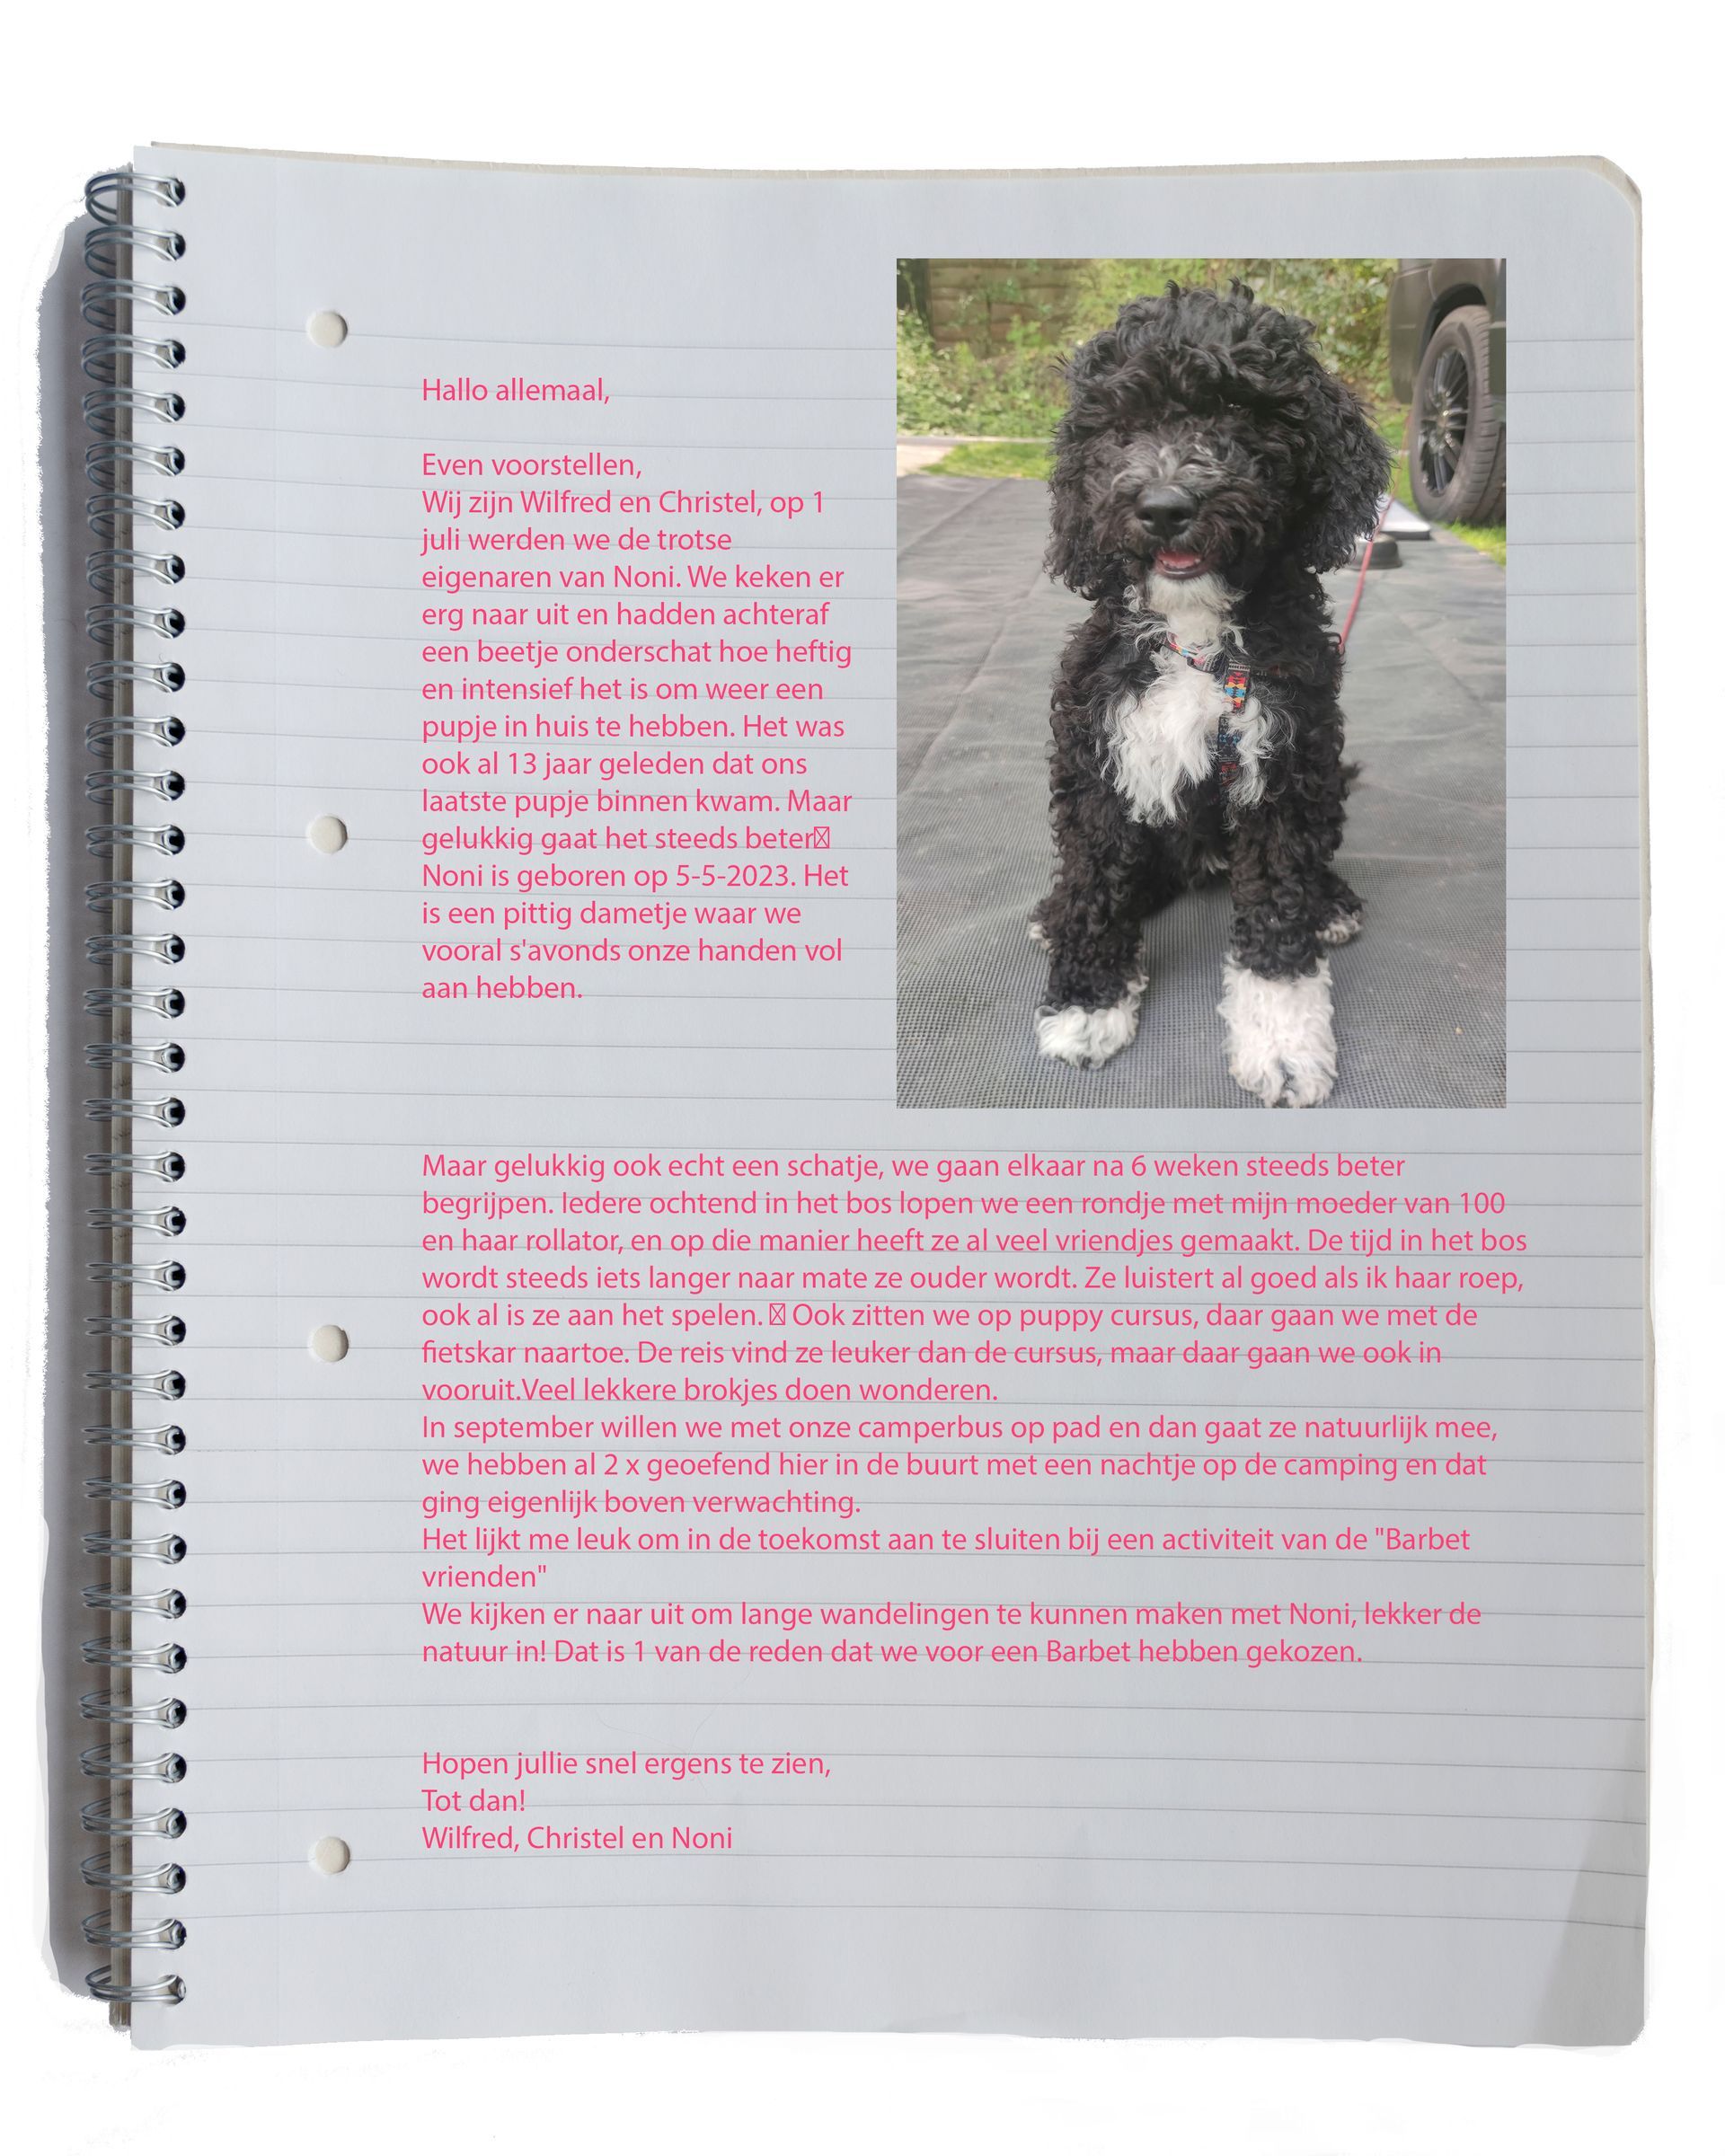 Hallo allemaal,
Even voorstellen,
Wij zijn Wilfred en Christel, op 1
juli werden we de trotse
eigenaren van Noni. We keken er
erg naar uit en hadden achteraf
een beetje onderschat hoe heftig
en intensief het is om weer een
pupje in huis te hebben. Het was
ook al 13 jaar geleden dat ons
laatste pupje binnen kwam. Maar
gelukkig gaat het steeds beter
Noni is geboren op 5-5-2023. Het
is een pittig dametje waar we
vooral s'avonds onze handen vol
aan hebben.
Maar gelukkig ook echt een schatje, we gaan elkaar na 6 weken steeds beter
begrijpen. Iedere ochtend in het bos lopen we een rondje met mijn moeder van 100
en haar rollator, en op die manier heeft ze al veel vriendjes gemaakt. De tijd in het bos
wordt steeds iets langer naar mate ze ouder wordt. Ze luistert al goed als ik haar roep,
ook al is ze aan het spelen. Ook zitten we op puppy cursus, daar gaan we met de
fietskar naartoe. De reis vind ze leuker dan de cursus, maar daar gaan we ook in
vooruit.Veel lekkere brokjes doen wonderen.
In september willen we met onze camperbus op pad en dan gaat ze natuurlijk mee,
we hebben al 2 x geoefend hier in de buurt met een nachtje op de camping en dat
ging eigenlijk boven verwachting.
Het lijkt me leuk om in de toekomst aan te sluiten bij een activiteit van de "Barbet
vrienden"
We kijken er naar uit om lange wandelingen te kunnen maken met Noni, lekker de
natuur in! Dat is 1 van de reden dat we voor een Barbet hebben gekozen.
Hopen jullie snel ergens te zien,
Tot dan!
Wilfred, Christel en Noni